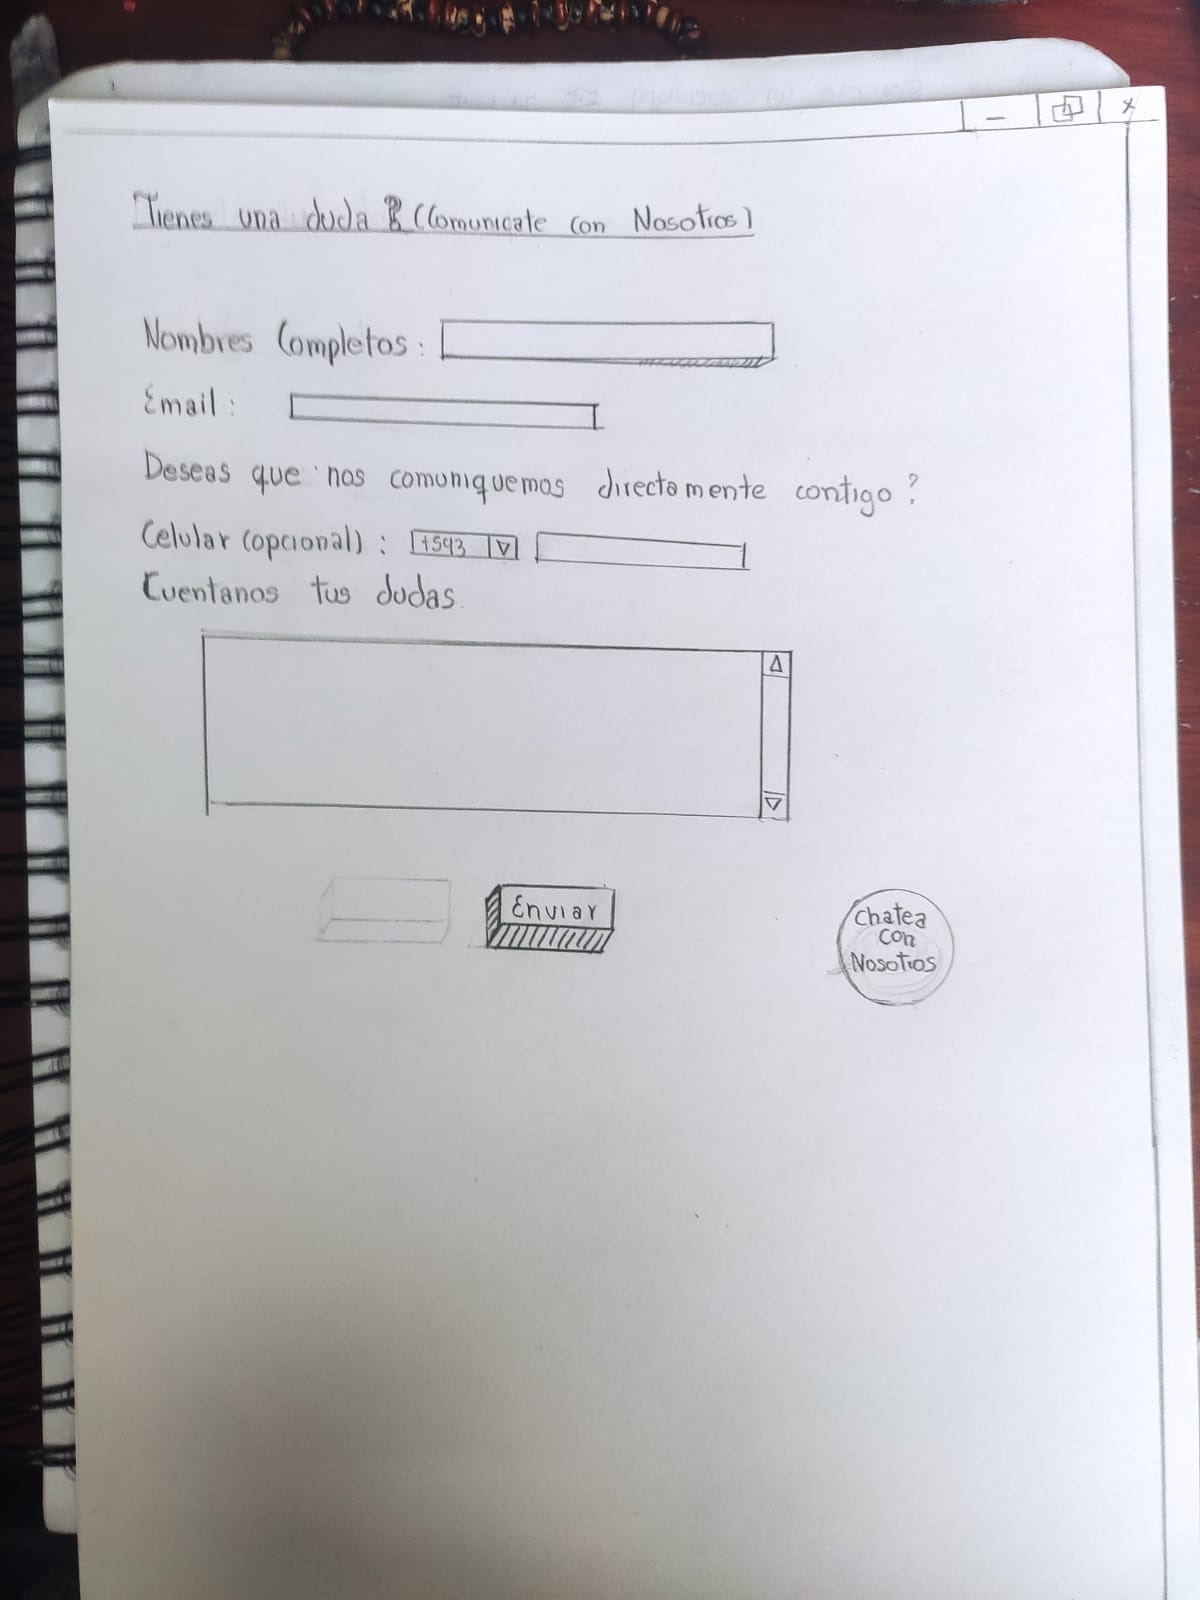 Tienes una duda ? (Comunicate con Nosotros)
Nombres Completos :
Email :
Deseas que nos comuniquemos directamente contigo ?
Celular (opcional) : +593
Cuentanos tus dudas.
Enviar
Chatea
con
Nosotros